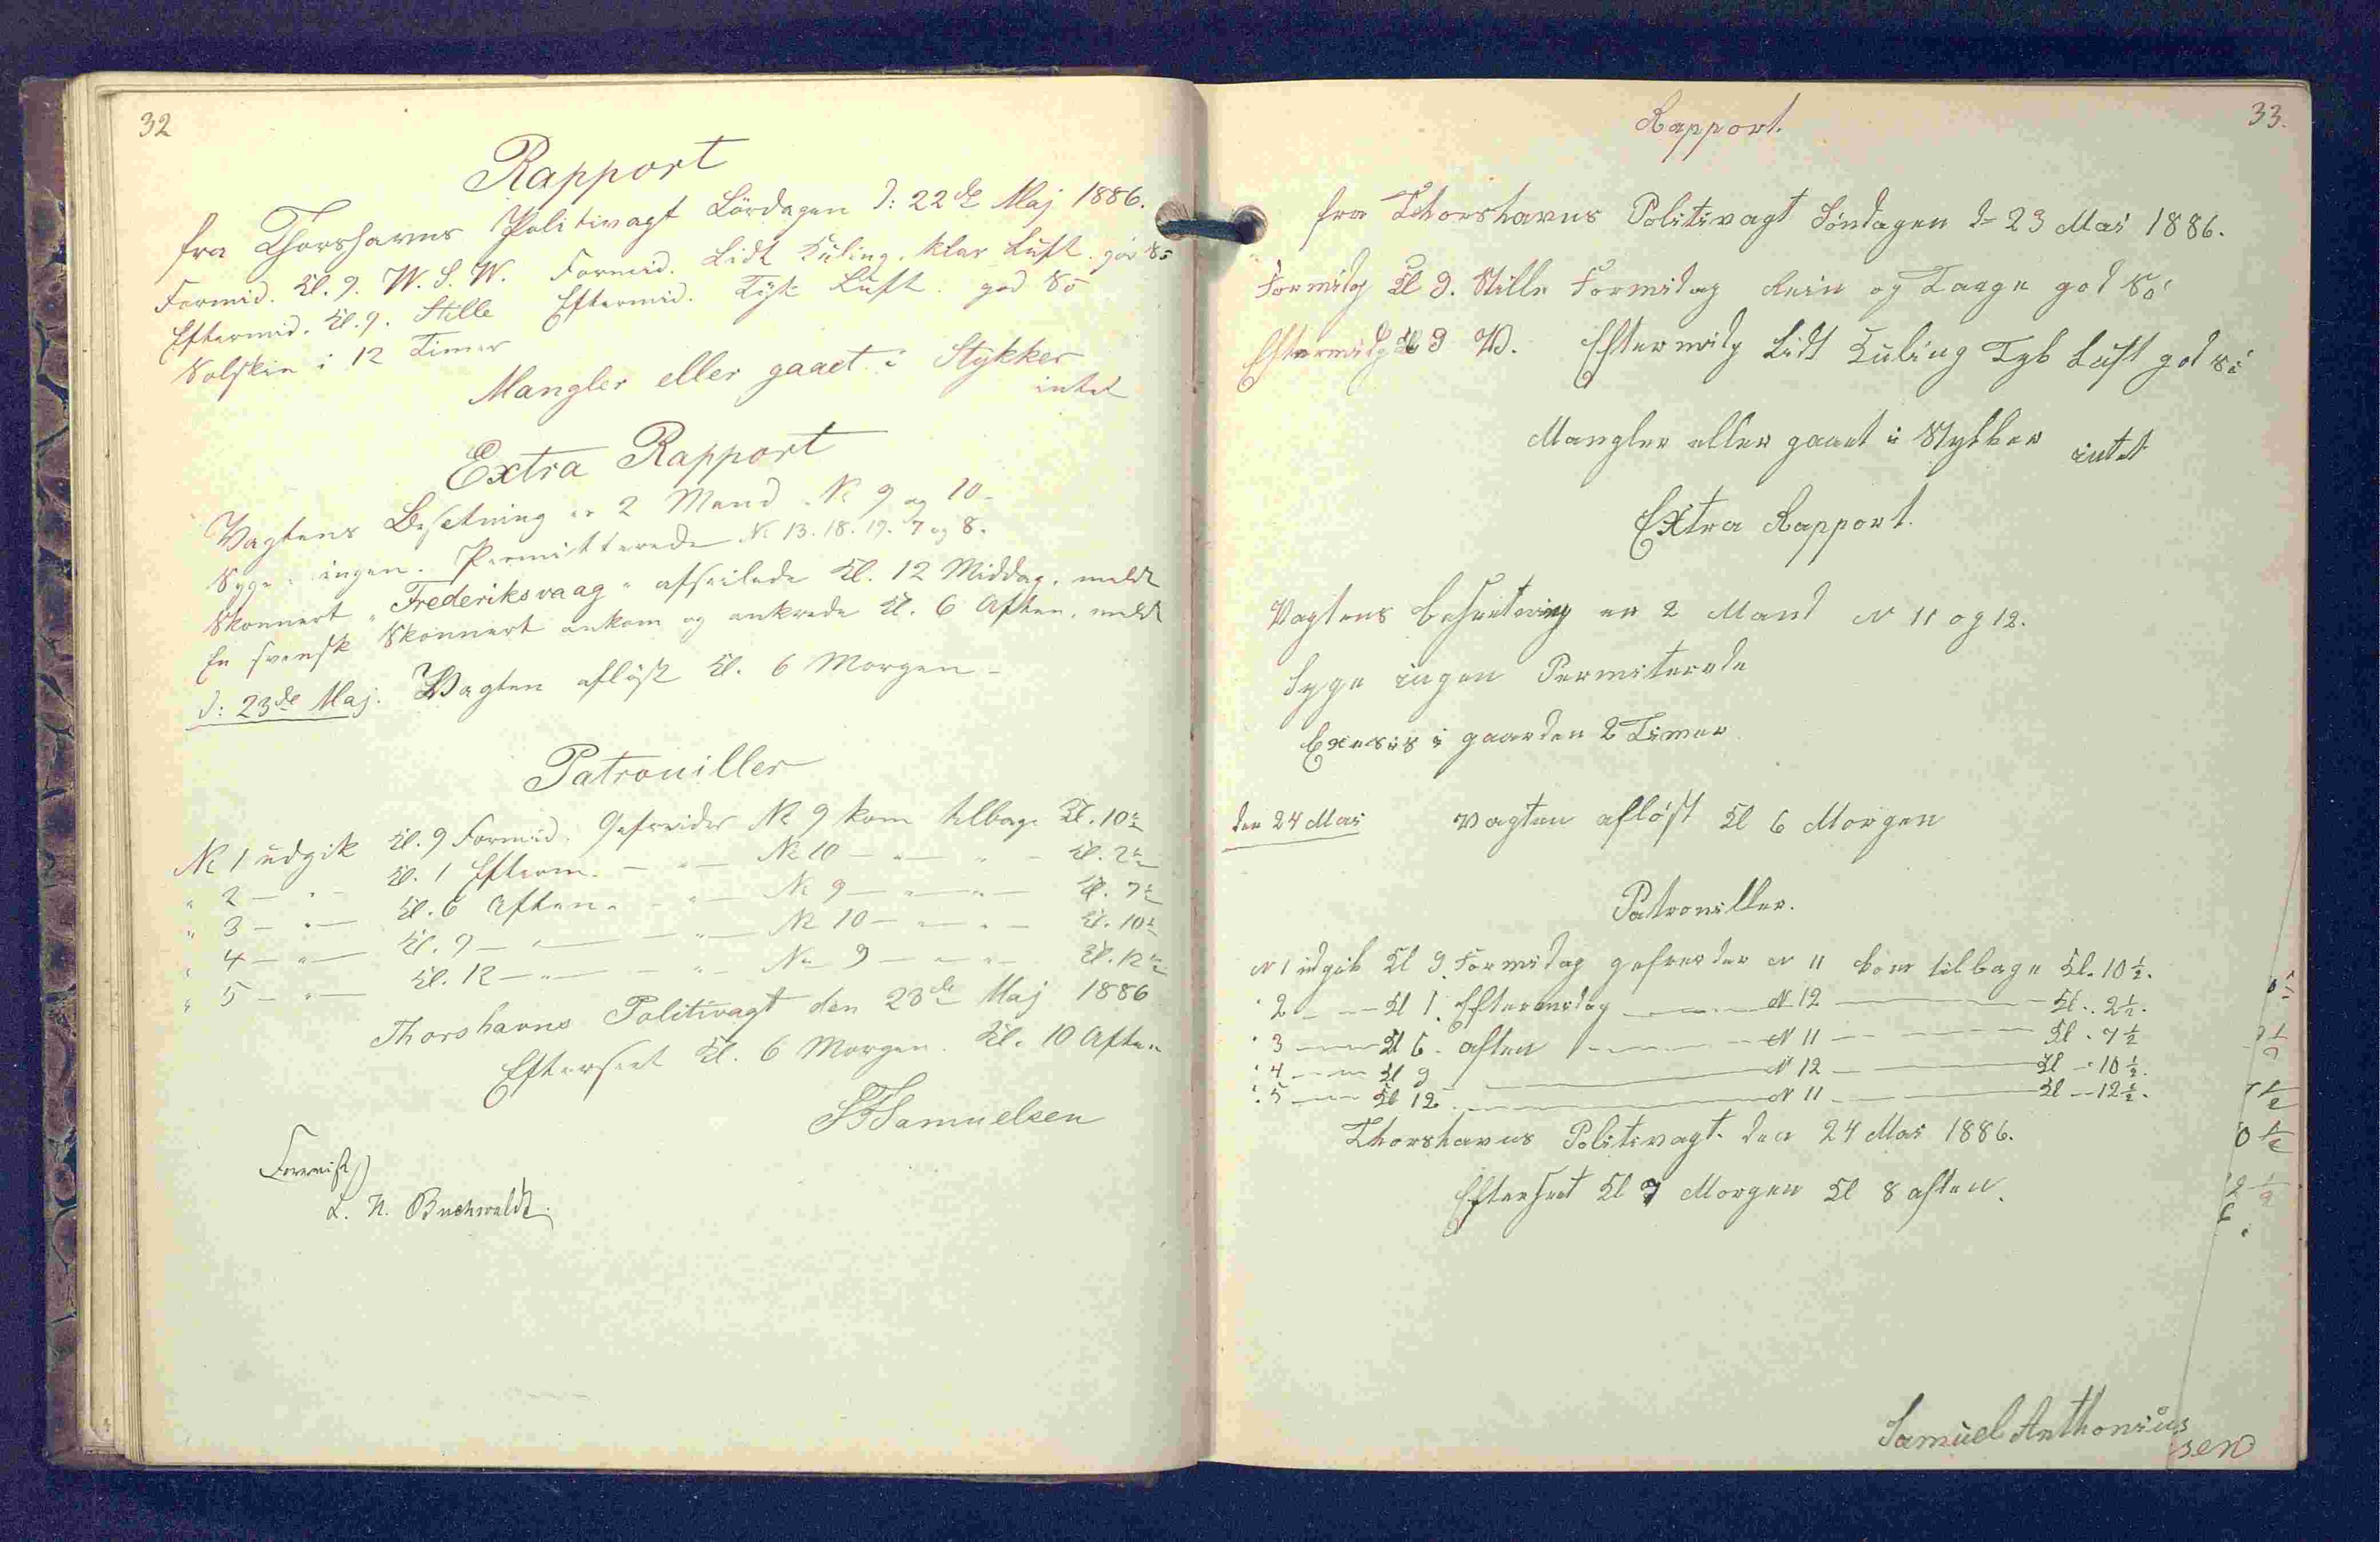 32
Rapport
fra Thorshavns Politivagt Lördagen d: 22de Maj 1886.
Formid. Kl. 9. W. S. W. Formid. Lidt Kuling. klar Luft. god Sö
Eftermid. Kl. 9. Stille Eftermid. Tyk Luft. god Sö
Solskin i 12 Timer
Mangler eller gaaet i Stykker
intet
Extra Rapport
Vagtens Besetning er 2 Mand. No 9 og 10-
Syge " ingen. Permitterede No 13. 18. 19. 7 og 8.
Skonnert " Frederiksvaag " afseilede Kl. 12 Middag. meldt
En svensk Skonnert ankom og ankrede Kl. 6 Aften. meldt
d: 23de Maj. Vagten aflöst Kl. 6 Morgen -
Patrouiller
No 1 udgik Kl. 9 Formid. Gefreider No 9 kom tilbage Kl. 10½
" 2 — " — Kl. 1 Efterm. — " — No 10 — " — " — Kl. 2½
" 3 — " — Kl. 6 Aften. — " — No 9 — " — " — Kl. 7½
" 4 — " — Kl. 9 — " — — " — No 10 — " — " — Kl. 10½
" 5 — " — Kl. 12 — " — — " — No 9 — " — " — Kl. 12½
Thorshavns Politivagt den 23de Maj 1886
Efterseet Kl. 6 Morgen. Kl. 10 Aften
Samuelsen
Forevist
L. N. Buchwaldt.
33.
Rapport.
fra Thorshavns Politivagt Söndagen d- 23 Mai 1886.
Formidag Kl 9. Stille Formidag Rein og Taage god Sö
Eftermidg Kl 9 W. Eftermidg Lidt Kuling Tyk Luft god Sö
Mangler eller gaaet i Stykker intet
Extra Rapport.
Vagtens besetning er 2 Mand N 11 og 12.
Syge ingen Permiterede
Exersis i gaarden 2 Timer
den 24 Mai Vagten aflöst Kl 6 Morgen
Patrouiller.
N 1 udgik Kl 9. Formidag gefreider N 11 kom tilbage Kl. 10½.
" 2 — — Kl 1. Eftermidag — — N 12 — — Kl. 2½.
" 3 — — Kl 6. aften — — N 11 — — Kl. 7½
" 4 — — Kl 9 — — N 12 — — Kl - 10½.
" 5 — — Kl 12 — — N 11 — — Kl - 12½.
Thorshavns Politivagt. den 24 Mai 1886.
Efterseet Kl 7 Morgen Kl 8 aften.
Samuel Anthonius
sen